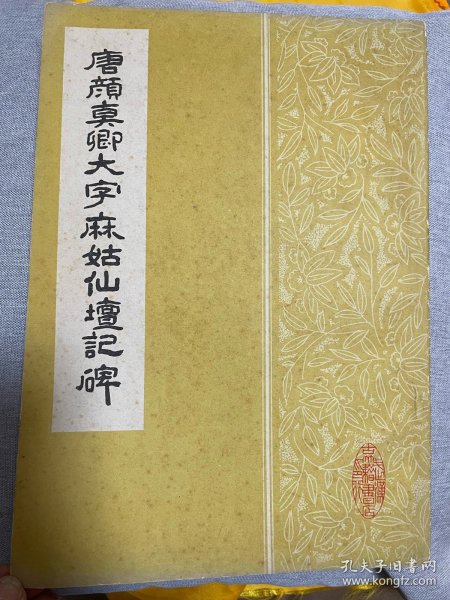 唐顔真卿大字麻姑仙壇記碑
孔夫子旧书网
www.kongfz.com